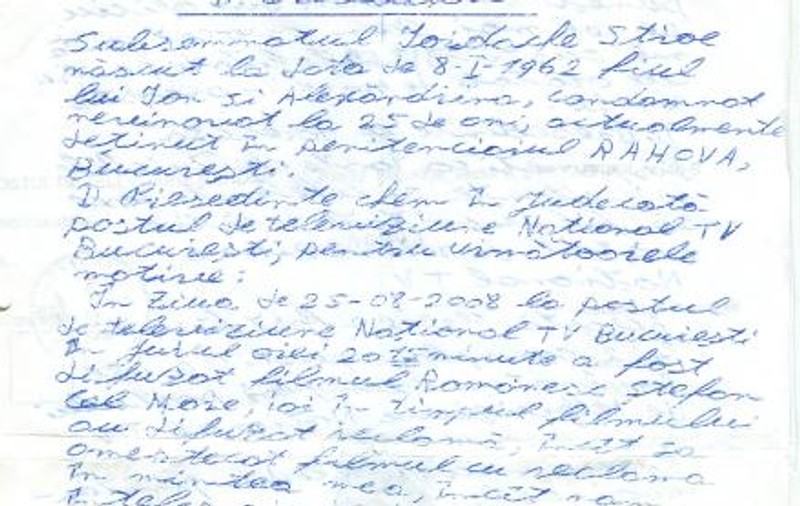 Subsemnatul Iordache Stroe
născut la data de 8-I-1962 fiul
lui Ion si Alexandrina, condamnat
nevinovat la 25 de ani, actualmente
detinut în penitenciarul RAHOVA,
Bucuresti.
D. Presedinte chem în judecată
postul de televiziune National TV
Bucuresti, pentru următoarele
motive:
In ziua de 25-08-2008 la postul
de televiziune National TV Bucuresti
în jurul orei 20 minute a fost
difuzat filmul Românesc Stefan
Cel Mare, iar în timpul filmului
au difuzat reclamă, încît sa
amestecat filmul cu reclama
în mintea mea, încît nam